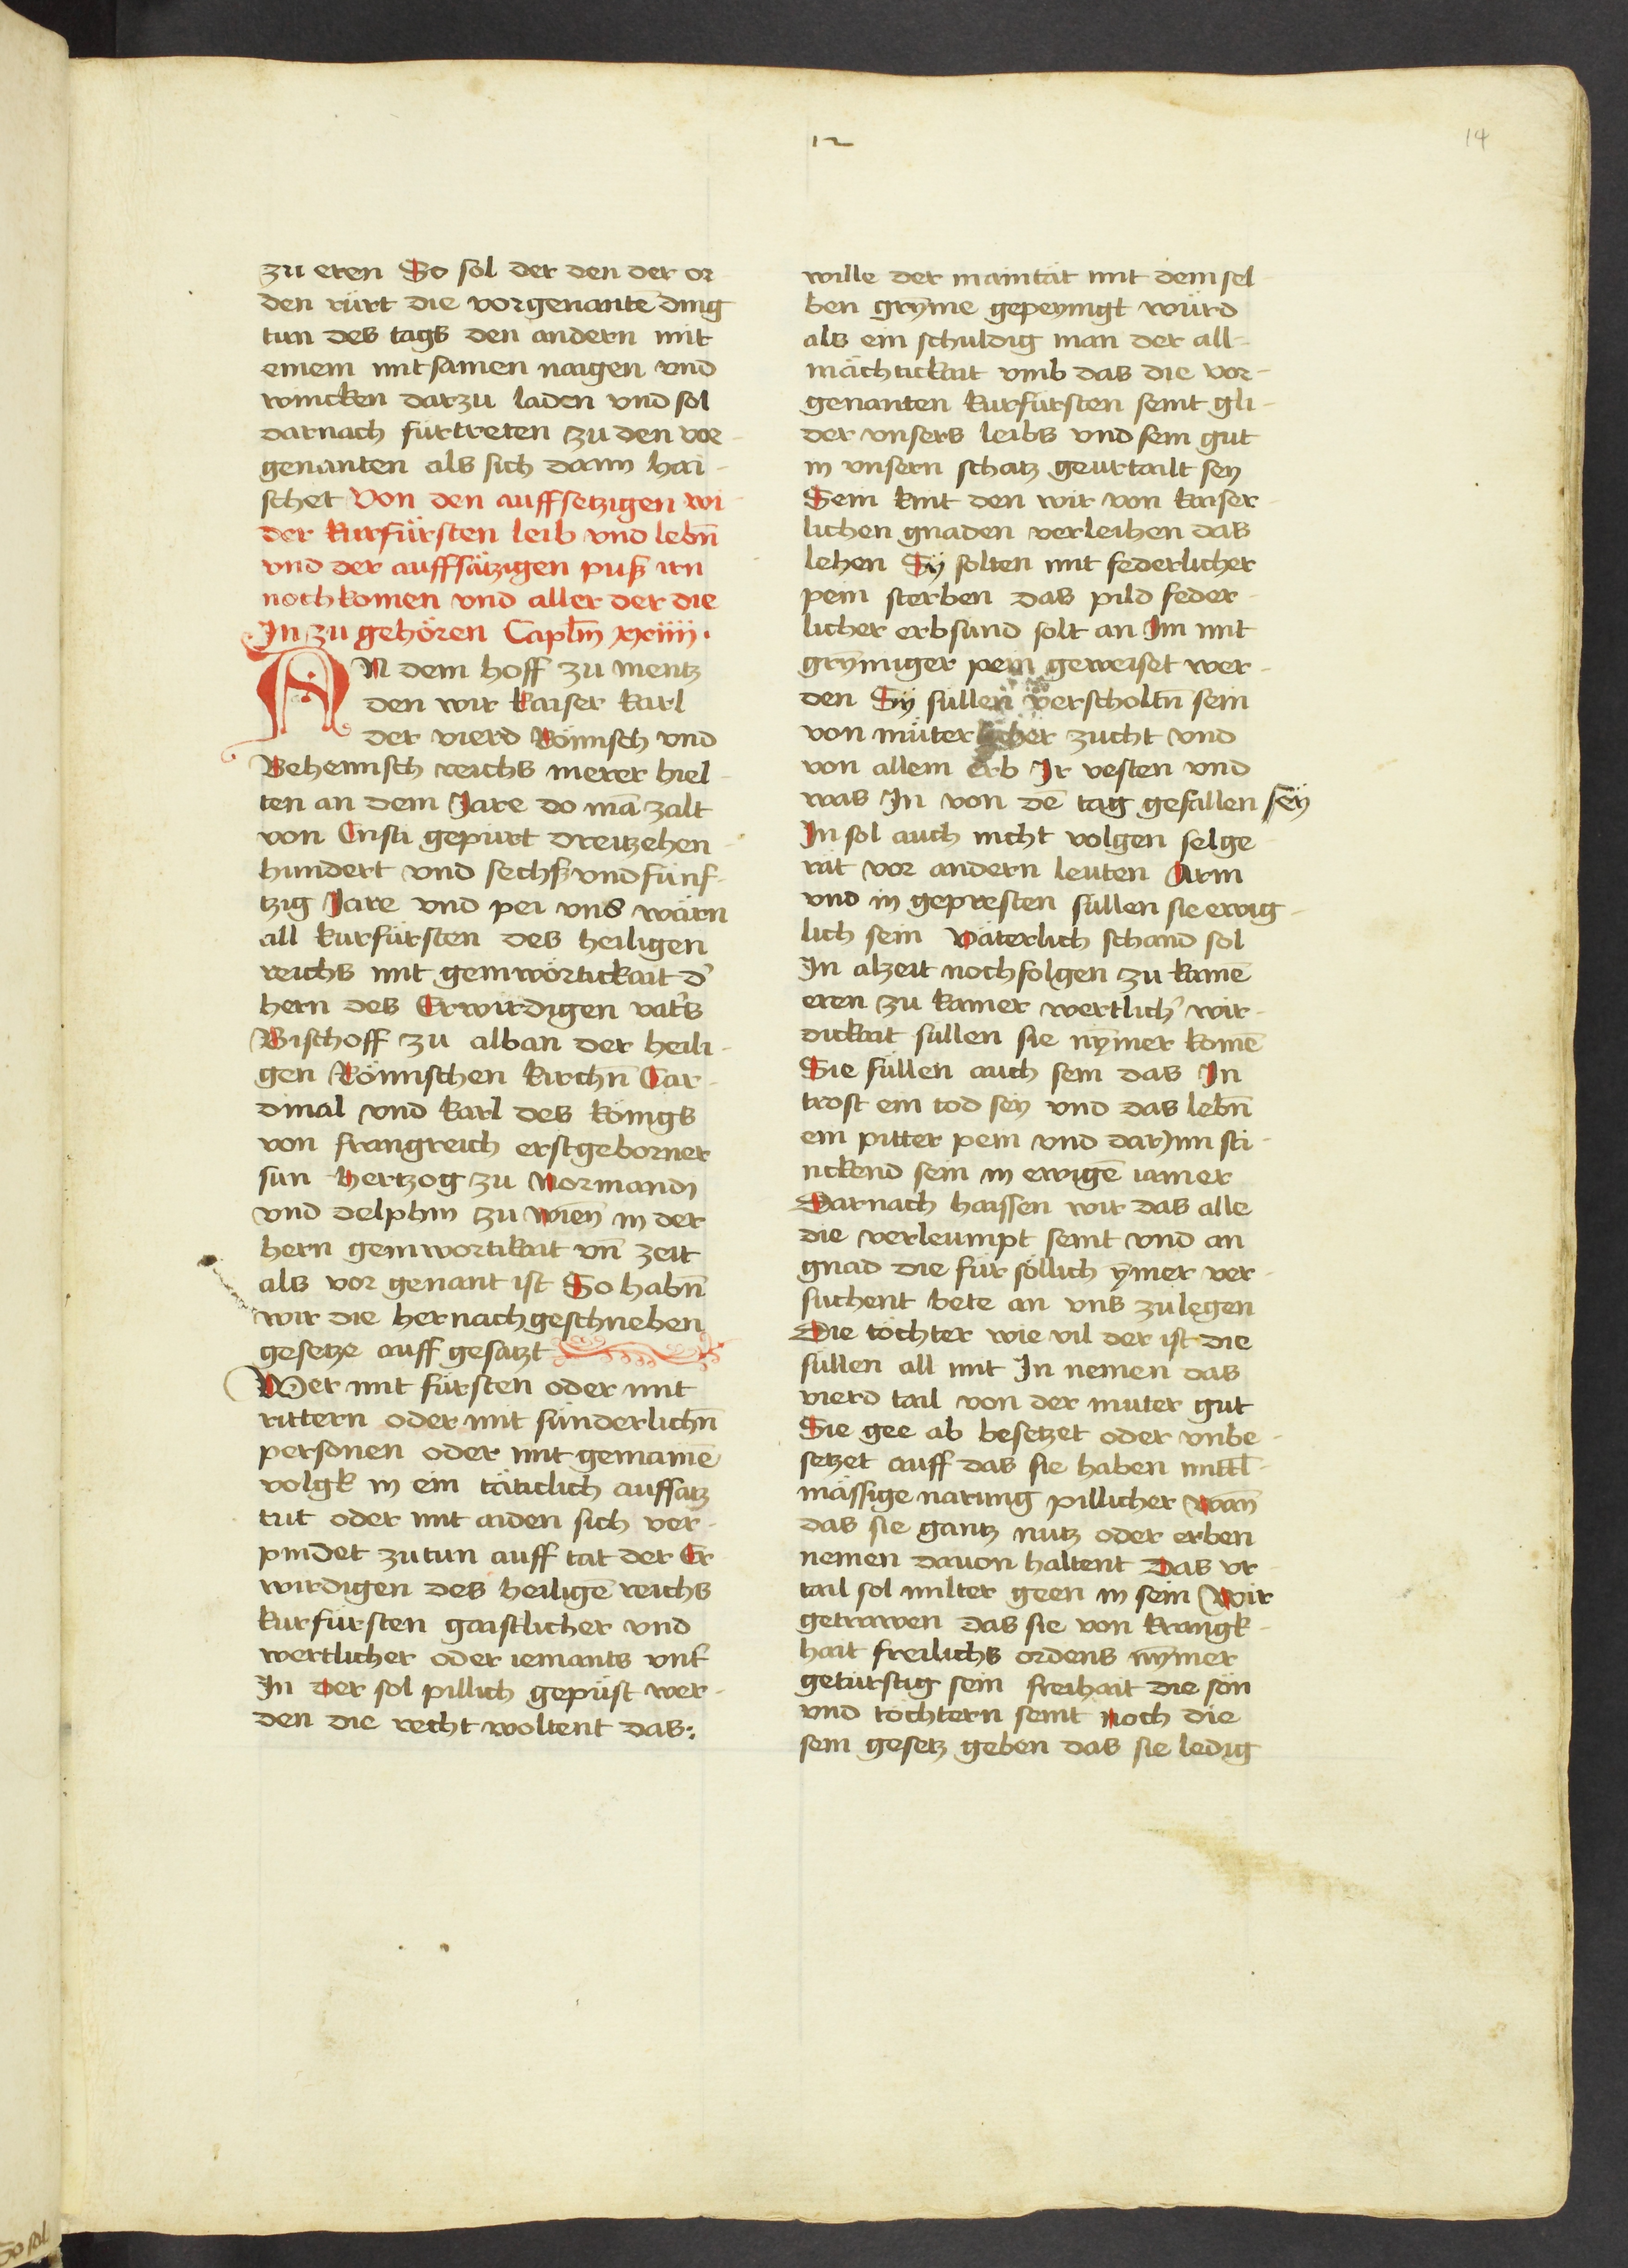 12
14
zu eren So sol der den der or-
den rürt die vorgenantē ding
tun des tags den andern mit
einem mitsamen naigen vnd
wincken darzu laden vnd sol
darnach fürtreten zu den vor-
genanten als sich dann hai-
schet Von den auffsetzigen wi-
der kurfürsten leib vnd lebn̄
vnd der auffsätzigen puß irn
nochkomen vnd aller der die
In zu gehören Caplm̄ xxiiii.
AN dem hoff zu mentz
den wir kaiser karl
der vierd Römisch vnd
Behemisch reichs merer hiel-
ten an dem Jare do mā zalt
von Cristi gepurt dreitzehen-
hundert vnd sechß vnd fünf-
tzig Jare vnd pei vns wärn
all kurfürsten des heiligen
reichs mit gemwörtickait d'
hern des Erwirdigen vat's
Bischoff zu alban der heili-
gen Römischen kirchn̄ Car-
dinal vnd karl des königs
von frangreich erstgeborner
sun hertzog zu Normandi
vnd delphin zu wien̄ in der
hern gemwortikait vn̄ zeit
als vor genant ist So habn̄
wir die hernachgeschrieben
gesetze auff gesatzt
Wer mit fürsten oder mit
rittern oder mit sünderlichn̄
personen oder mit gemainē
volgk in ein täticlich auffsatz
tut oder mit aiden sich ver-
pindet zutun auff tat der Er-
wirdigen des heiligē reichs
kurfürsten gaistlicher vnd
wertlicher oder iemants vnt'
In der sol pillich gepüst wer-
den die recht woltent das:
wille der maintät mit dem sel-
ben grym̄e gepeynigt würd
als ein schuldig man der all-
mächtickait vmb das die vor-
genanten kurfürsten seint gli-
der vnsers leibs vnd sein gut
in vnsern schatz geurtailt sey
Sein kint den wir von kaiser-
lichen gnaden verleihen das
lehen Sy solten mit federlicher
pein sterben das pild feder-
licher erbsund solt an Im mit
grym̄iger pein geweiset wer-
den Sy süllen verscholtn̄ sein
von müterlicher zucht vnd
von allem erb Ir vesten vnd
was In von dē tag gefallen sey
In sol auch nicht volgen selge-
rät vor andern leuten Arm
vnd in gepresten süllen sie ewig-
lich sein väterlich schand sol
In alzeit nochfolgen zu kainē
eren zu kainer wertlich' wir-
dickait sullen sie nym̄er komē
Sie süllen auch sein das In
trost ein tod sey vnd das lebn̄
ein pitter pein vnd darinn sti-
nckend sein in ewigē iamer
Darnach haissen wir das alle
die verleumpt seint vnd an
gnad die für söllich ymer ver-
suchent bete an vns zulegen
Die töchter wie vil der ist die
süllen all mit In nemen das
vierd tail von der muter gut
Sie gee ab besetzet oder vnbe-
setzet auff das sie haben mittl-
mässige narung pillicher wan̄
das sie gantz nutz oder erben
nemen dauon haltent Das vr-
tail sol milter geen in sein Wir
getrawen das sie von krangk-
hait freilichs ordens nym̄er
getürstig sein freihait die sön
vnd töchtern seint noch die
sem gesetz geben das sie ledig
So sol